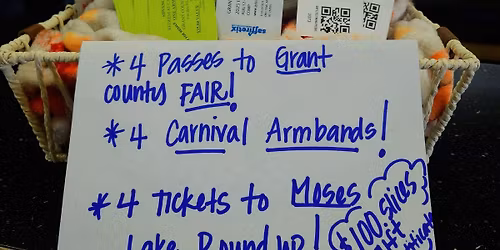 * 4 Passes to Grant
county FAIR!
* 4 Carnival Armbands!
* 4 Tickets to Moses
Lake Round up!
$100 Slices
Gift